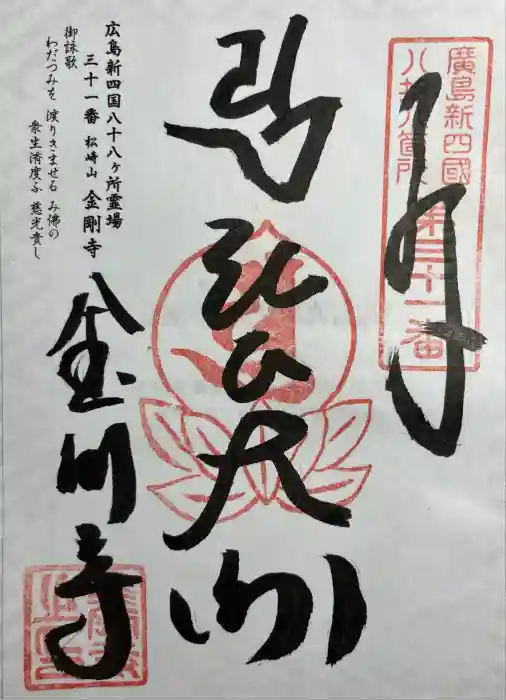 廣島新四國
八十八箇所
第三十一番
奉拝
弘法大師
広島新四国八十八ヶ所霊場
三十一番 松崎山 金剛寺
御詠歌
わだつみを 渡りきませる み佛の
衆生済度ふ 慈光貴し
金剛寺